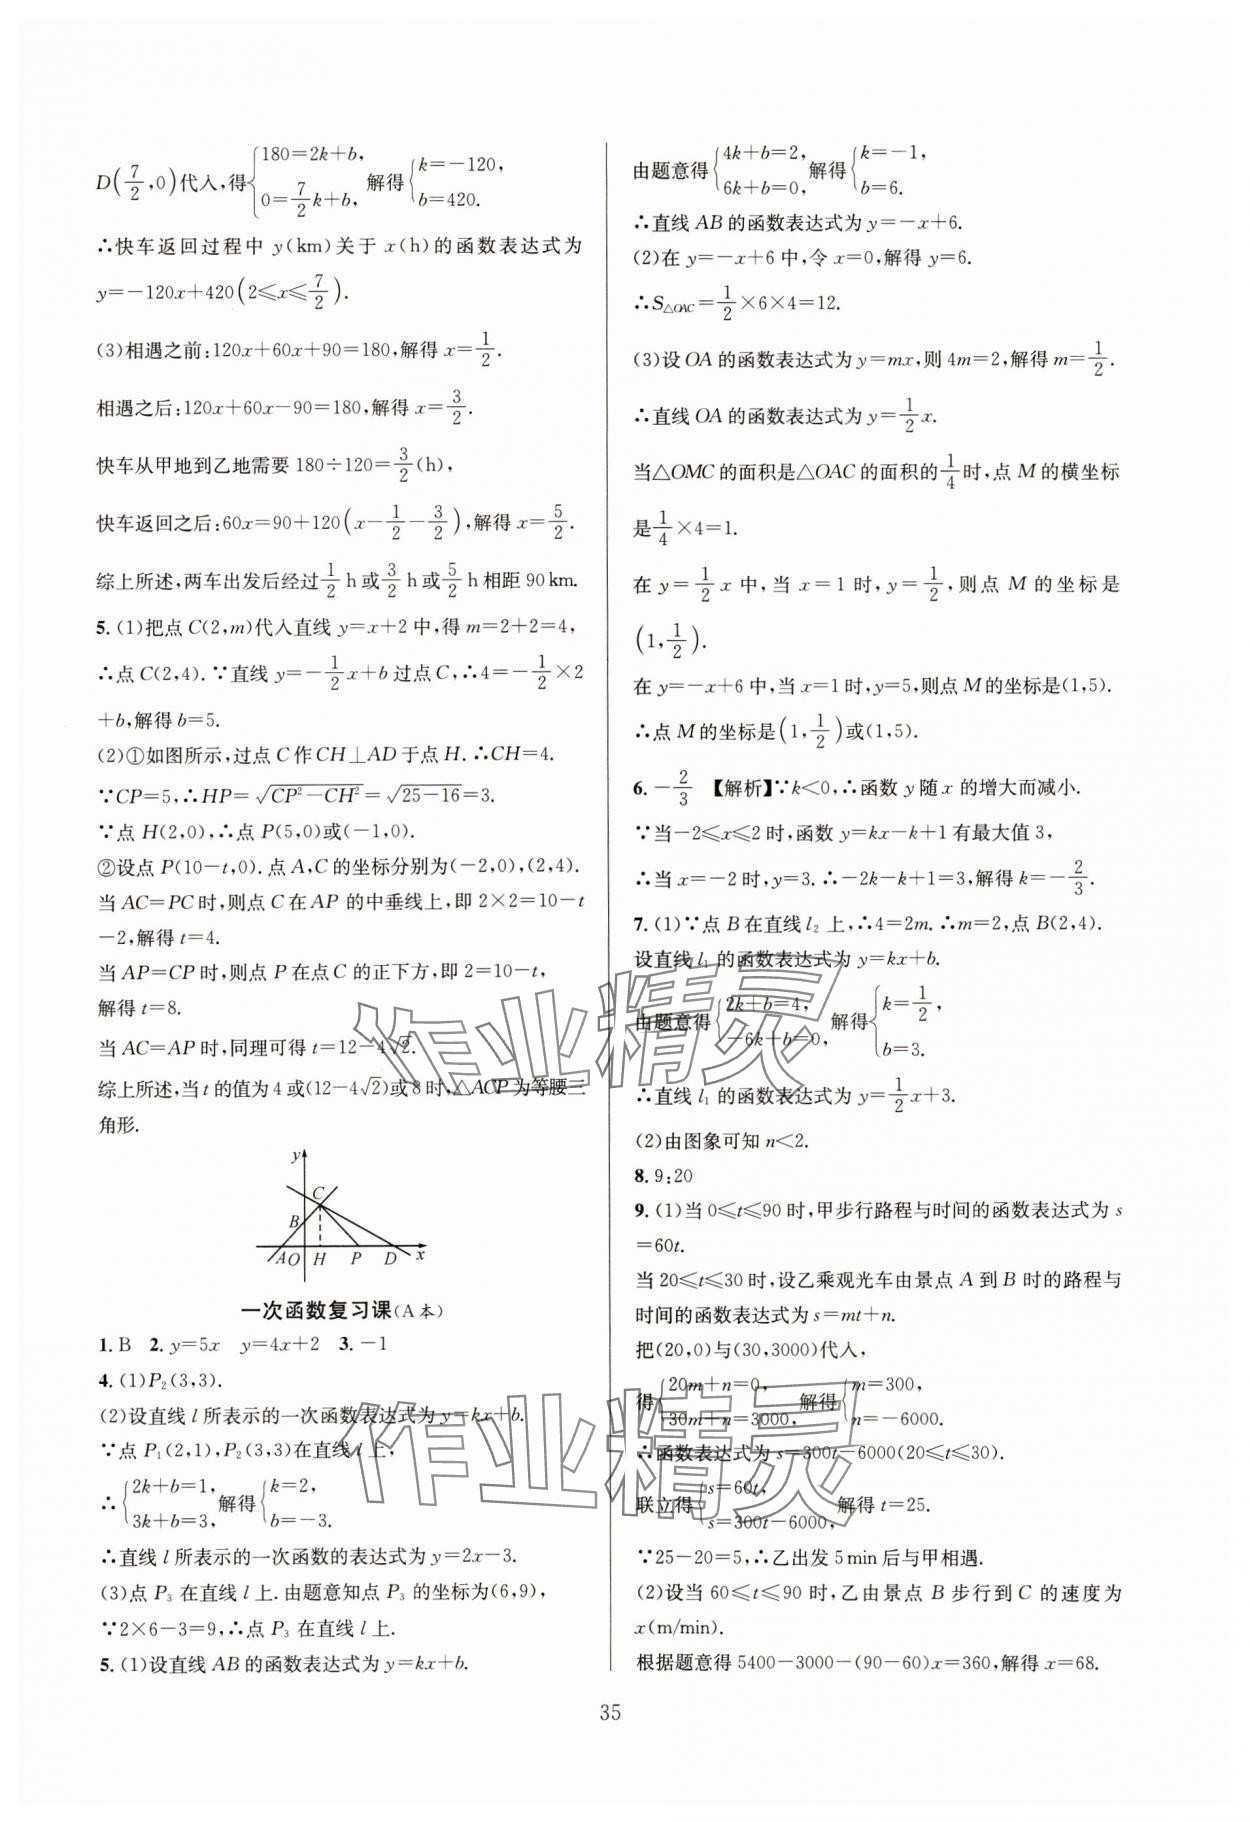 D(7/2,0)代入,得{180=2k+b, 0=7/2k+b, 解得{k=-120, b=420.
∴快车返回过程中 y(km)关于 x(h)的函数表达式为
y=-120x+420(2≤x≤7/2).
(3)相遇之前:120x+60x+90=180,解得 x=1/2.
相遇之后:120x+60x-90=180,解得 x=3/2.
快车从甲地到乙地需要 180÷120=3/2(h),
快车返回之后:60x=90+120(x-1/2-3/2),解得 x=5/2.
综上所述,两车出发后经过1/2 h或3/2 h或5/2 h相距 90 km.
5.(1)把点 C(2,m)代入直线 y=x+2 中,得 m=2+2=4,
∴点 C(2,4).∵直线 y=-1/2x+b 过点 C,∴4=-1/2×2
+b,解得 b=5.
(2)①如图所示,过点 C 作 CH⊥AD 于点 H.∴CH=4.
∵CP=5,∴HP=√(CP²-CH²)=√(25-16)=3.
∵点 H(2,0),∴点 P(5,0)或(-1,0).
②设点 P(10-t,0).点 A,C 的坐标分别为(-2,0),(2,4).
当 AC=PC 时,则点 C 在 AP 的中垂线上,即 2×2=10-t
-2,解得 t=4.
当 AP=CP 时,则点 P 在点 C 的正下方,即 2=10-t,
解得 t=8.
当 AC=AP 时,同理可得 t=12-4√2.
综上所述,当 t 的值为 4 或(12-4√2)或 8 时,△ACP 为等腰三
角形.
y
C
B
A O H P D x
一次函数复习课(A 本)
1. B 2. y=5x y=4x+2 3. -1
4.(1)P₂(3,3).
(2)设直线 l 所表示的一次函数表达式为 y=kx+b.
∵点 P₁(2,1),P₂(3,3)在直线 l 上,
∴{2k+b=1, 3k+b=3, 解得{k=2, b=-3.
∴直线 l 所表示的一次函数的表达式为 y=2x-3.
(3)点 P₃ 在直线 l 上.由题意知点 P₃ 的坐标为(6,9),
∵2×6-3=9,∴点 P₃ 在直线 l 上.
5.(1)设直线 AB 的函数表达式为 y=kx+b.
由题意得{4k+b=2, 6k+b=0, 解得{k=-1, b=6.
∴直线 AB 的函数表达式为 y=-x+6.
(2)在 y=-x+6 中,令 x=0,解得 y=6.
∴S△OAC=1/2×6×4=12.
(3)设 OA 的函数表达式为 y=mx,则 4m=2,解得 m=1/2.
∴直线 OA 的函数表达式为 y=1/2x.
当△OMC 的面积是△OAC 的面积的1/4时,点 M 的横坐标
是1/4×4=1.
在 y=1/2x 中,当 x=1 时,y=1/2,则点 M 的坐标是
(1,1/2).
在 y=-x+6 中,当 x=1 时,y=5,则点 M 的坐标是(1,5).
∴点 M 的坐标是(1,1/2)或(1,5).
6. -2/3 【解析】∵k<0,∴函数 y 随 x 的增大而减小.
∵当-2≤x≤2 时,函数 y=kx-k+1 有最大值 3,
∴当 x=-2 时,y=3.∴-2k-k+1=3,解得 k=-2/3.
7.(1)∵点 B 在直线 l₂ 上,∴4=2m.∴m=2,点 B(2,4).
设直线 l₁ 的函数表达式为 y=kx+b.
由题意得{2k+b=4, -6k+b=0, 解得{k=1/2, b=3.
∴直线 l₁ 的函数表达式为 y=1/2x+3.
(2)由图象可知 n<2.
8. 9:20
9.(1)当 0≤t≤90 时,甲步行路程与时间的函数表达式为 s
=60t.
当 20≤t≤30 时,设乙乘观光车由景点 A 到 B 时的路程与
时间的函数表达式为 s=mt+n.
把(20,0)与(30,3000)代入,
得{20m+n=0, 30m+n=3000, 解得{m=300, n=-6000.
∴函数表达式为 s=300t-6000(20≤t≤30).
联立得{s=60t, s=300t-6000, 解得 t=25.
∵25-20=5,∴乙出发 5 min 后与甲相遇.
(2)设当 60≤t≤90 时,乙由景点 B 步行到 C 的速度为
x(m/min).
根据题意得 5400-3000-(90-60)x=360,解得 x=68.
35
作业精灵
作业精灵